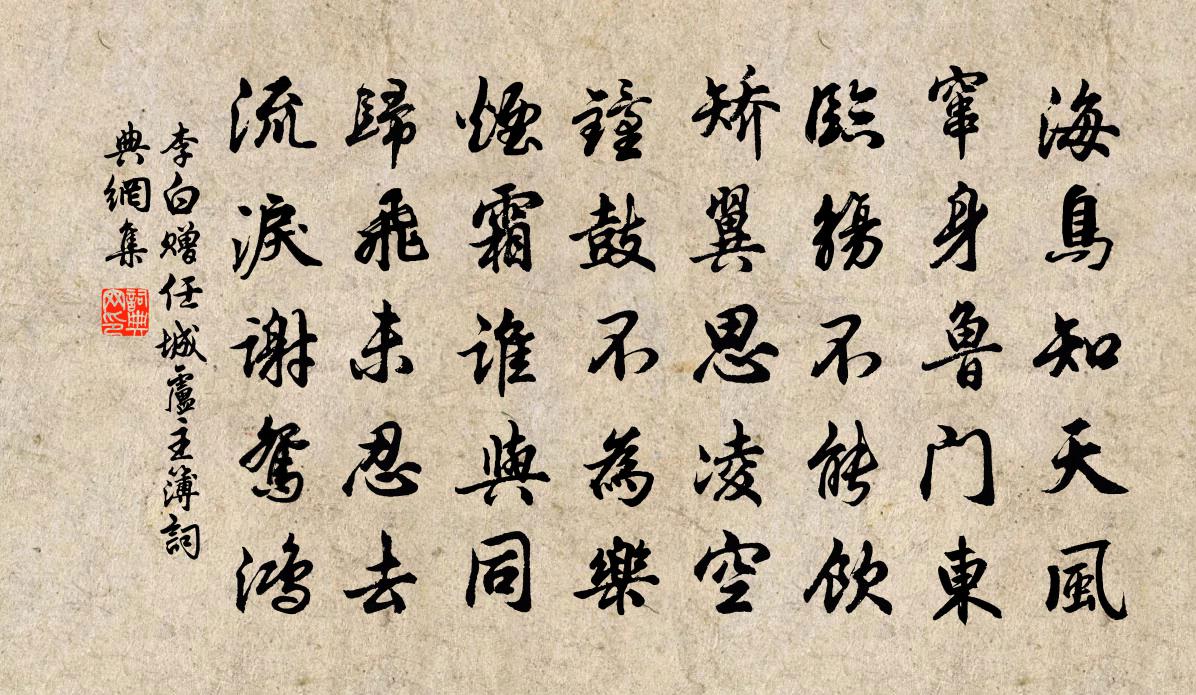 海鳥知天風
竄身魯門東
臨觴不能飲
矯翼思凌空
鐘鼓不為樂
煙霜誰與同
歸飛未忍去
流淚謝鴛鴻
李白贈任城盧主簿詞
典網集
詞典
网印